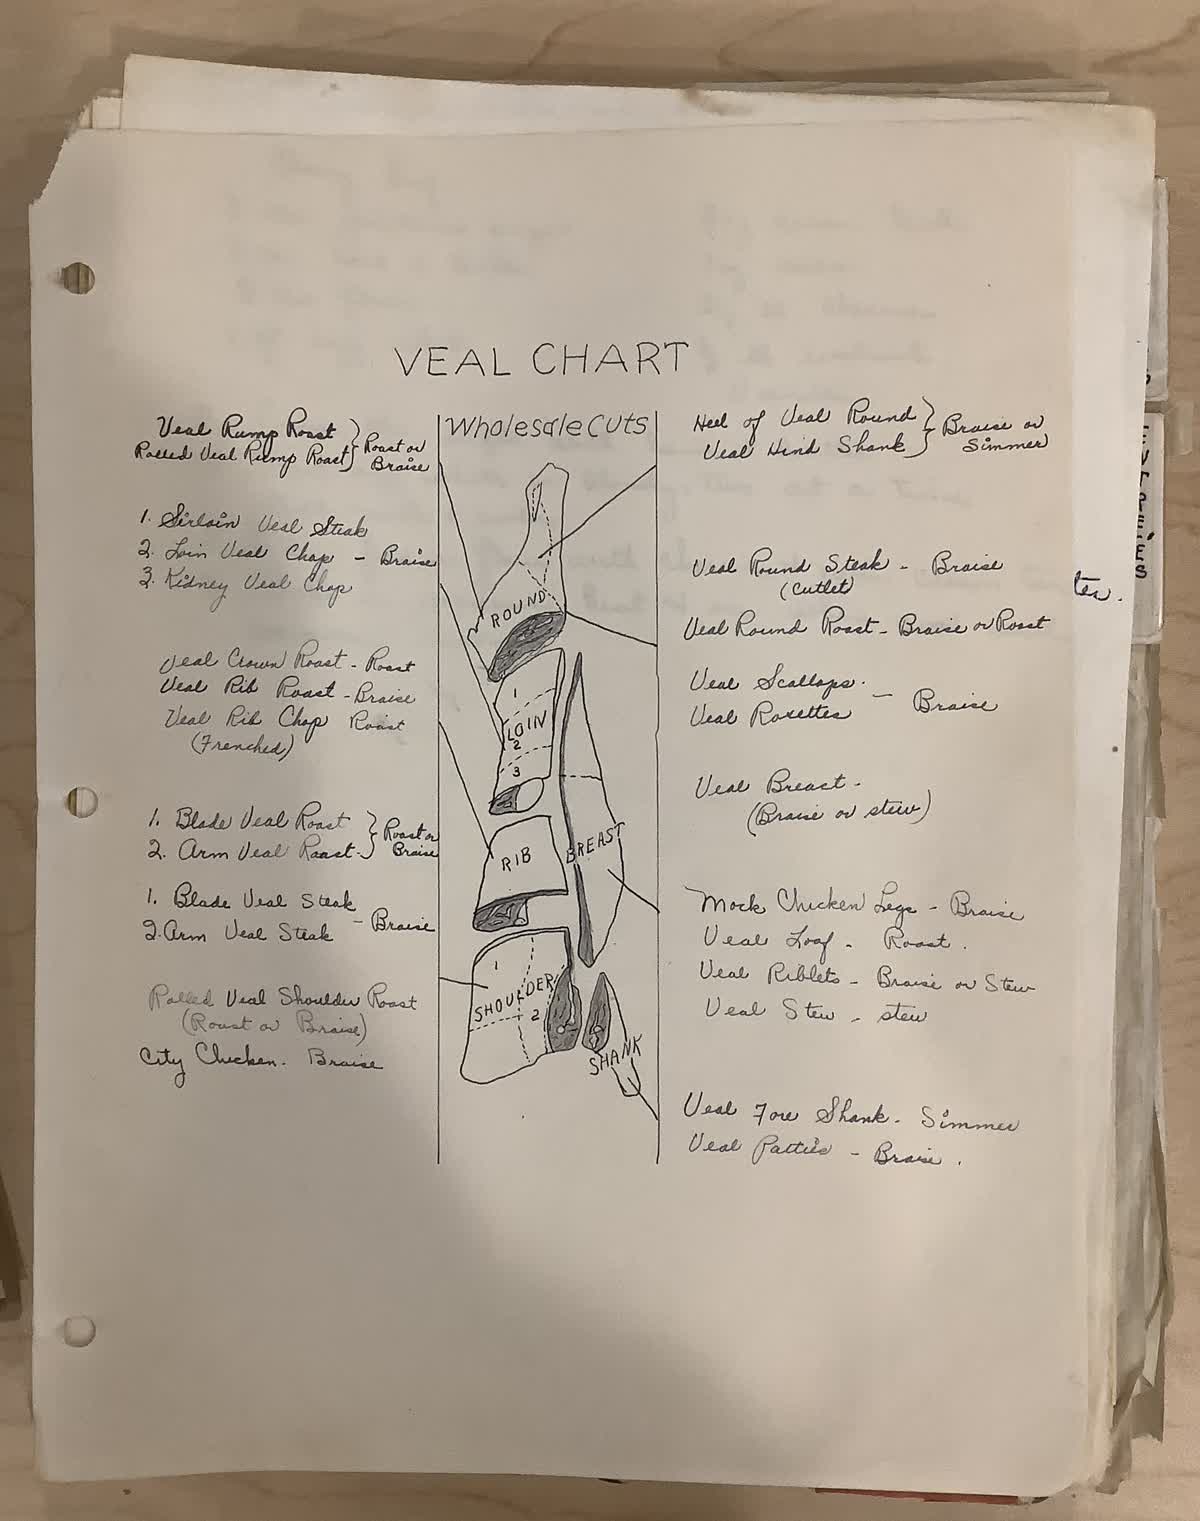 VEAL CHART
Veal Rump Roast
Rolled Veal Rump Roast } Roast or Braise
1. Sirloin Veal Steak
2. Loin Veal Chop - Braise
3. Kidney Veal Chop
Veal Crown Roast - Roast
Veal Rib Roast - Braise
Veal Rib Chop Roast
(Frenched)
1. Blade Veal Roast
2. Arm Veal Roast - } Roast or Braise
1. Blade Veal Steak
2. Arm Veal Steak - Braise
Rolled Veal Shoulder Roast
(Roast or Braise)
City Chicken - Braise
Wholesale Cuts
ROUND
1
LOIN
2
3
RIB
BREAST
1
SHOULDER
2
SHANK
Heel of Veal Round
Veal Hind Shank } Braise or Simmer
Veal Round Steak - Braise
(Cutlet)
Veal Round Roast - Braise or Roast
Veal Scallops -
Veal Rosettes - Braise
Veal Breast -
(Braise or stew)
Mock Chicken Legs - Braise
Veal Loaf - Roast.
Veal Riblets - Braise or Stew
Veal Stew - stew
Veal Fore Shank - Simmer
Veal Patties - Braise.
tes.